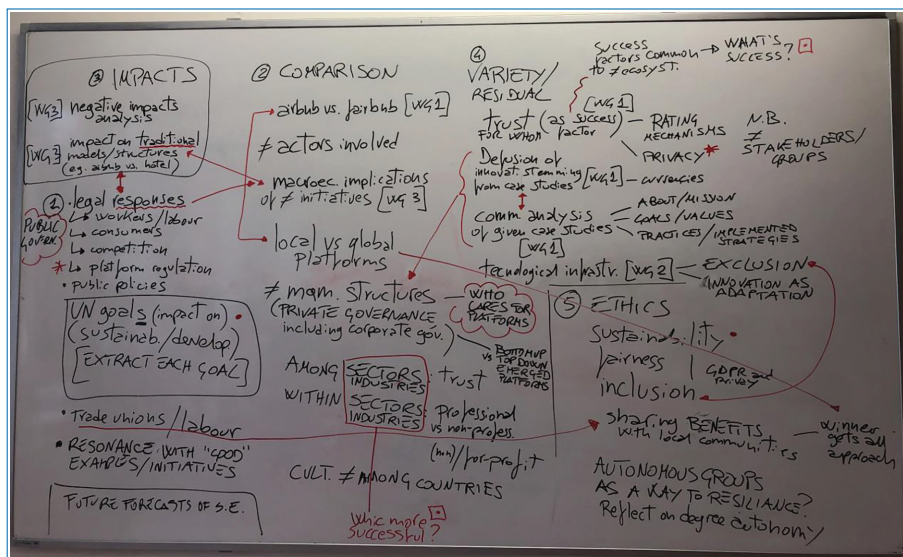 ③ IMPACTS
[WG3] negative impacts
analysis
[WG3] impact on traditional
models/structures
(eg. airbnb vs. hotel)
① • legal responses
PUBLIC
GOVERN.
↳ workers/labour
↳ consumers
↳ competition
* ↳ platform regulation
• public policies
UN goals (impact on) •
(sustainab./develop)
[EXTRACT EACH GOAL]
• Trade unions/labour
• RESONANCE WITH "GOOD"
EXAMPLES/INITIATIVES
FUTURE FORECASTS OF S.E.
② COMPARISON
airbnb vs. fairbnb [WG1]
≠ actors involved
macroec. implications
of ≠ initiatives [WG3]
local vs global
platforms
≠ mgm. structures
(PRIVATE GOVERNANCE
including corporate gov.)
WHO
CARES FOR
PLATFORMS
BOTTOM UP
vs TOP DOWN
EMERGED
PLATFORMS
AMONG SECTORS
INDUSTRIES : trust
WITHIN SECTORS
INDUSTRIES : professional
vs non-profess.
(non)/for-profit
CULT. ≠ AMONG COUNTRIES
Whic more
successful?
④
VARIETY/
RESIDUAL
success
factors common → WHAT'S
to ≠ ecosyst. SUCCESS?
[WG1]
trust (as success
FOR WHOM factor) — RATING
MECHANISMS
PRIVACY *
N.B.
≠
STAKEHOLDERS/
GROUPS
Defusion of
innovat. stemming
from case studies [WG1] — currencies
comm analysis
of given case studies
[WG1]
ABOUT/MISSION
GOALS/VALUES
PRACTICES/IMPLEMENTED
STRATEGIES
tecnological infrastr. [WG2] — EXCLUSION
INNOVATION AS
ADAPTATION
⑤ ETHICS
sustainability •
fairness
inclusion
GDPR and
privacy
sharing BENEFITS
with local communities — winner
gets all
approach
AUTONOMOUS GROUPS
AS A WAY TO RESILIANCE?
Reflect on degree autonomy